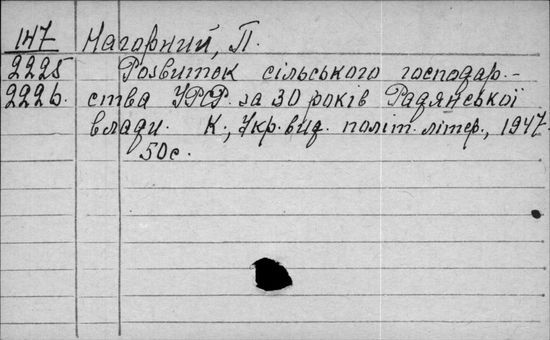 147 Нагорний, П.
2225 Розвиток сільського господар-
2226. ства УРСР за 30 років Радянської
влади. К., Укр. вид. політ. літер., 1947.
50с.